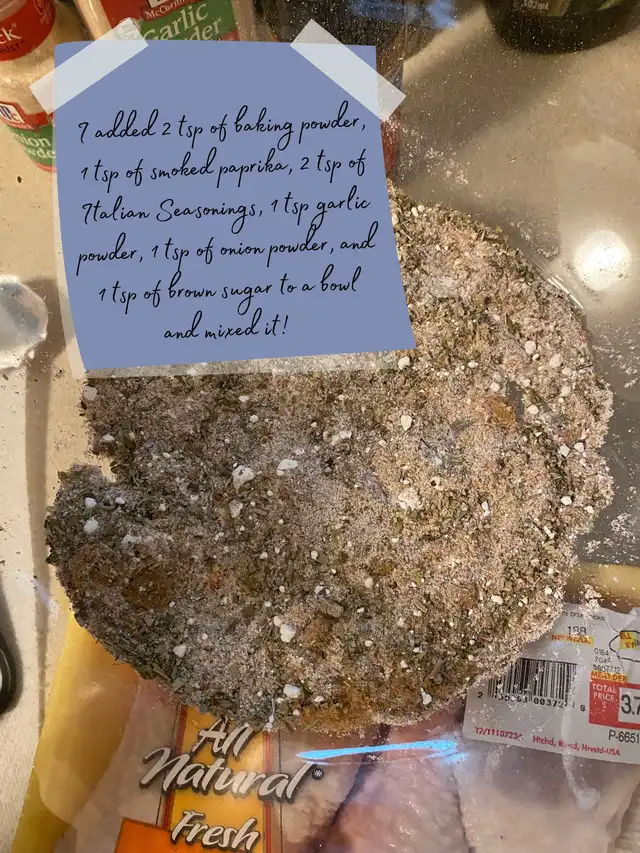 McCormick
Garlic
Powder
I added 2 tsp of baking powder,
1 tsp of smoked paprika, 2 tsp of
Italian Seasonings, 1 tsp garlic
powder, 1 tsp of onion powder, and
1 tsp of brown sugar to a bowl
and mixed it!
188
0184
TOTAL
PRICE
$
3.7
P-6651
Htchd, Raised, Hrvstd-USA
All
Natural*
Fresh